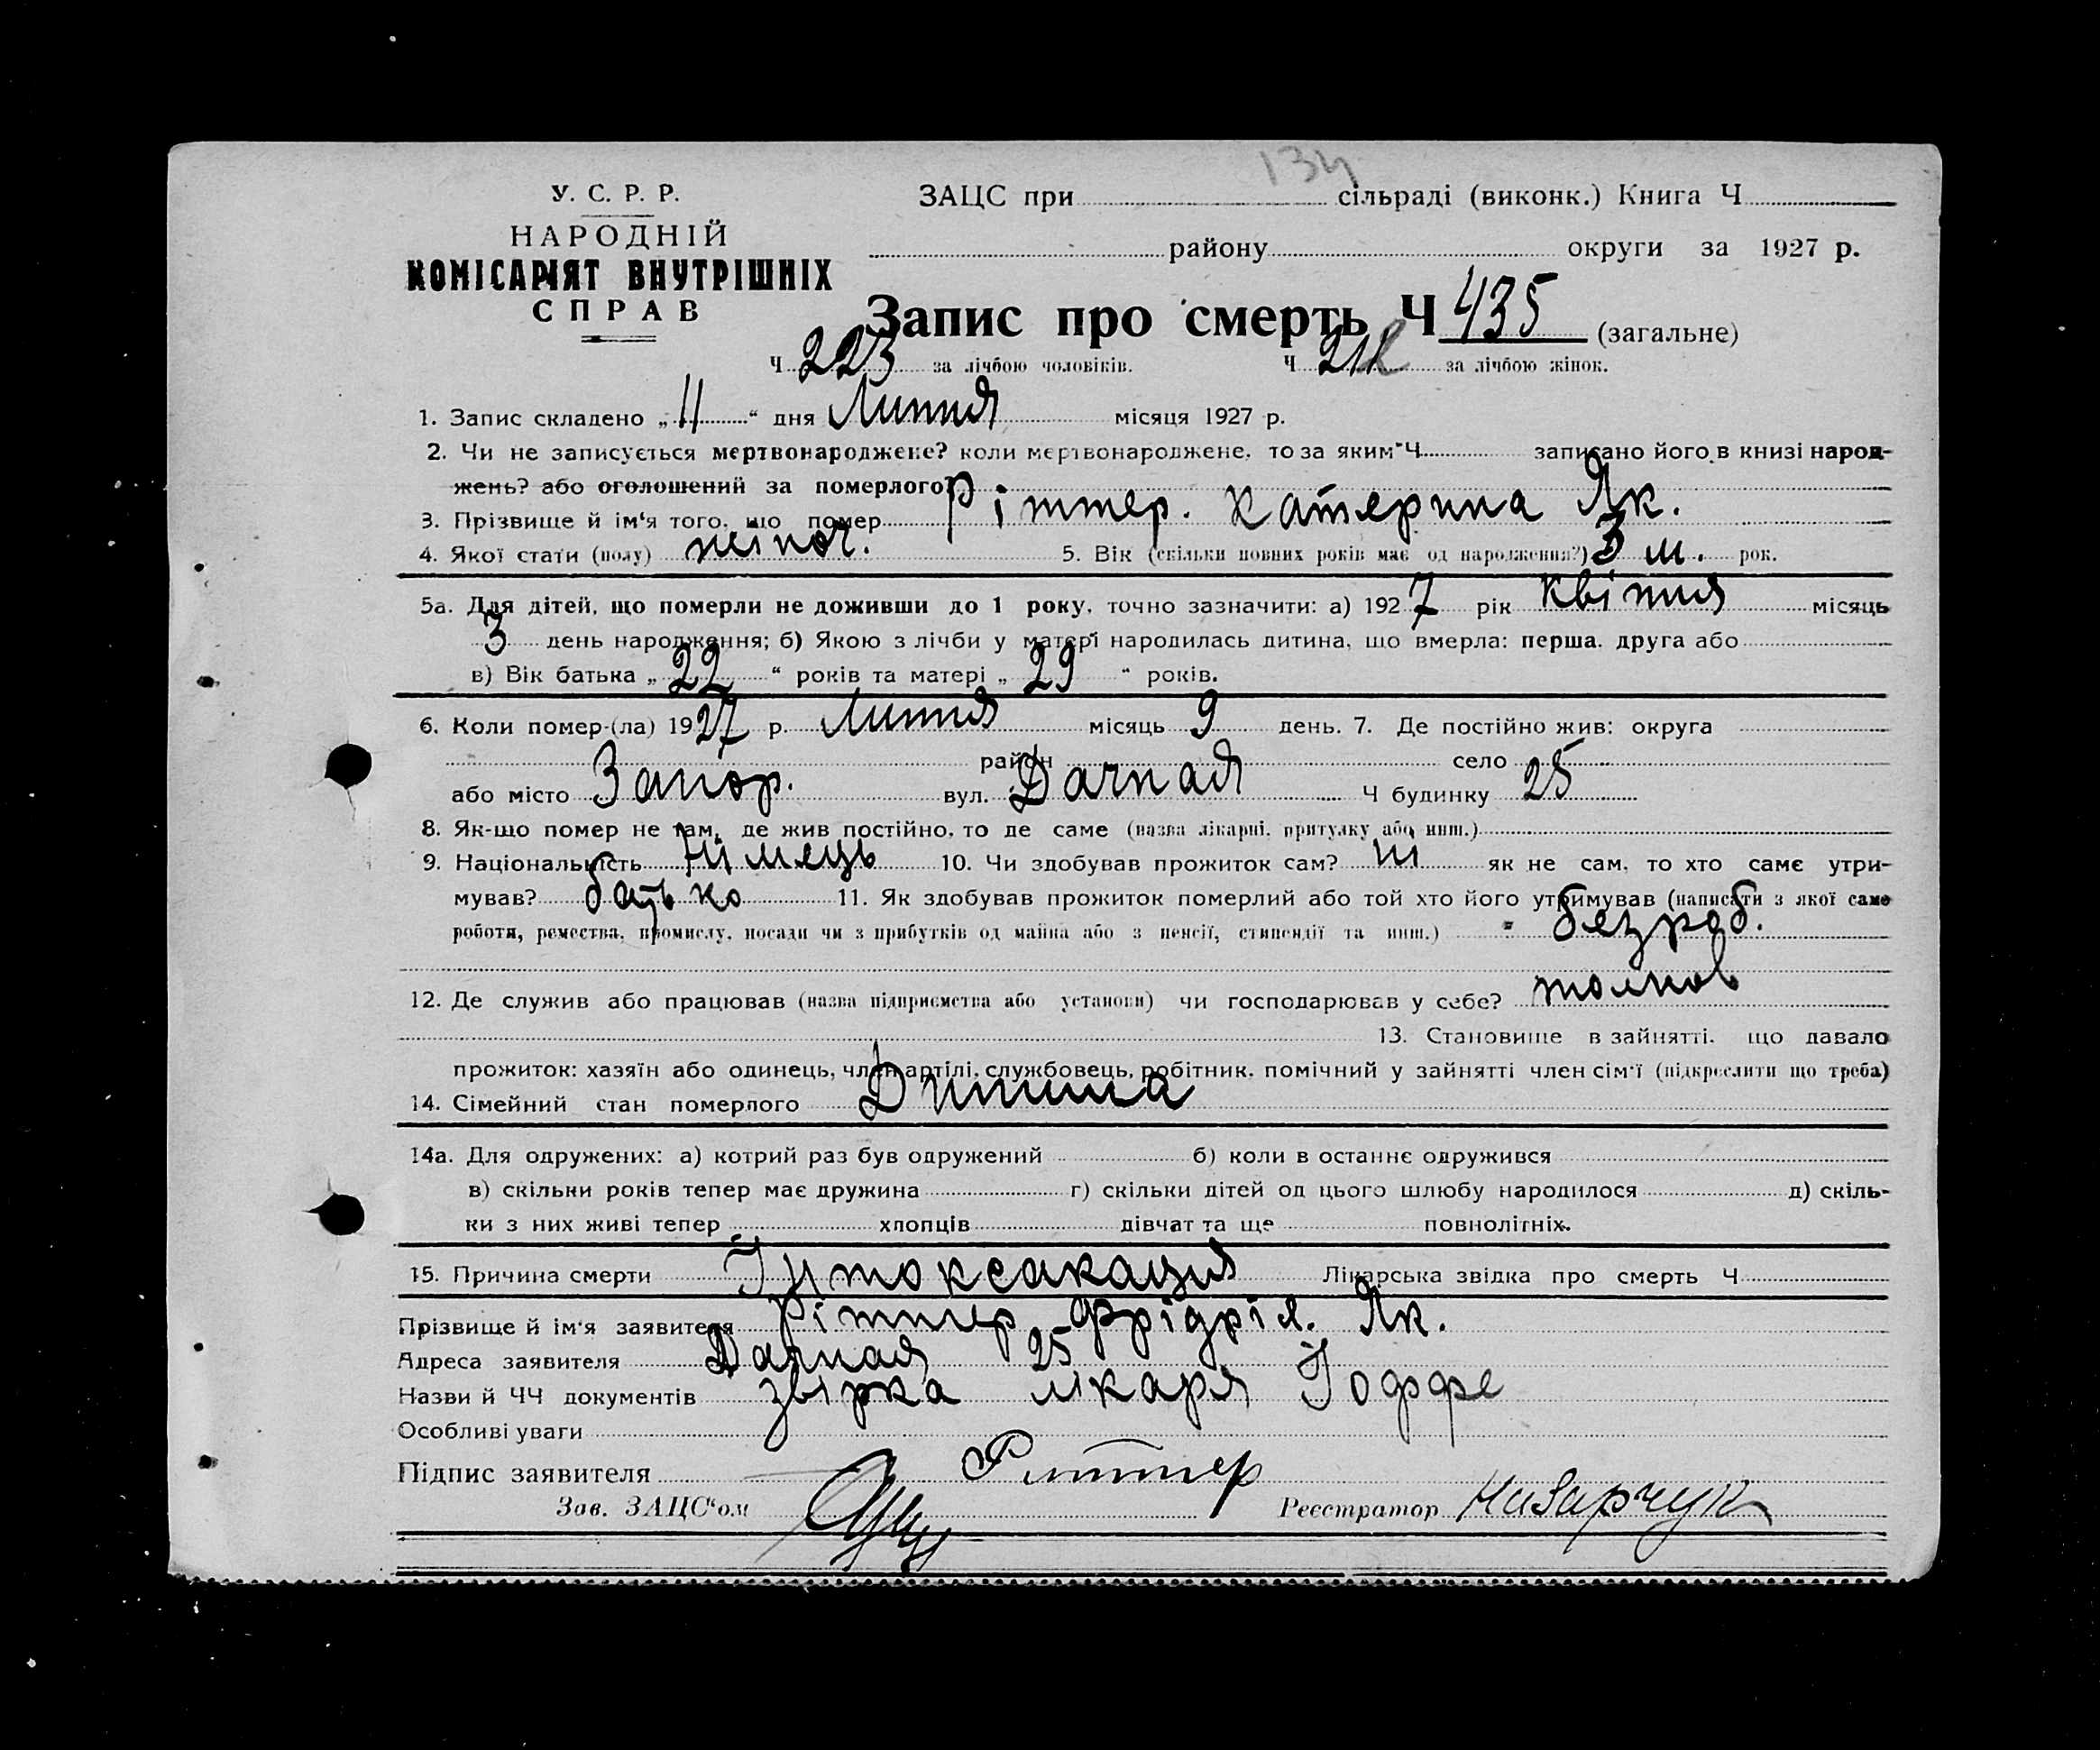 134
У. С. Р. Р.
НАРОДНІЙ
КОМІСАРІЯТ ВНУТРІШНІХ
СПРАВ
ЗАЦС при сільраді (виконк.) Книга Ч
району округи за 1927 р.
Запис про смерть Ч 435 (загальне)
Ч 223 за лічбою чоловіків. Ч 212 за лічбою жінок.
1. Запис складено „ 11 “ дня Липня місяця 1927 р.
2. Чи не записується мертвонароджене? коли мертвонароджене, то за яким Ч записано його в книзі народ-
жень? або оголошений за померлого?
3. Прізвище й ім'я того, що помер Ріттер. Катерина Як.
4. Якої стати (полу) жіноч. 5. Вік (скільки повних років має од народження?) 3 м. рок.
5а. Для дітей, що померли не доживши до 1 року, точно зазначити: а) 1927 рік Квітня місяць
3 день народження; б) Якою з лічби у матері народилась дитина, що вмерла: перша, друга або
в) Вік батька „ 22 “ років та матері „ 29 “ років.
6. Коли помер-(ла) 1927 р. Липня місяць 9 день. 7. Де постійно жив: округа
район село
або місто Запор. вул. Дачная Ч будинку 25
8. Як-що помер не там, де жив постійно, то де саме (назва лікарні, притулку або инш.)
9. Національність Німець 10. Чи здобував прожиток сам? ні як не сам, то хто саме утри-
мував? батько 11. Як здобував прожиток померлий або той хто його утримував (написати з якої саме
роботи, ремества, промислу, посади чи з прибутків од майна або з пенсії, стипендії та инш.) безроб.
12. Де служив або працював (назва підприємства або установи) чи господарював у себе?
13. Становище в зайнятті, що давало
прожиток: хазяїн або одинець, член артілі, службовець, робітник, помічний у зайнятті член сім'ї (підкреслити що треба)
14. Сімейний стан померлого Дитина
14а. Для одружених: а) котрий раз був одружений б) коли в останнє одружився
в) скільки років тепер має дружина г) скільки дітей од цього шлюбу народилося д) скіль-
ки з них живі тепер хлопців дівчат та ще повнолітніх.
15. Причина смерти Інтоксакация Лікарська звідка про смерть Ч
Прізвище й ім'я заявителя Ріттер Фрідріх. Як.
Адреса заявителя Дачная 25
Назви й ЧЧ документів звірка лікаря Іоффе
Особливі уваги
Підпис заявителя Риттер
Зав. ЗАЦС'ом Реєстратор Назарчук